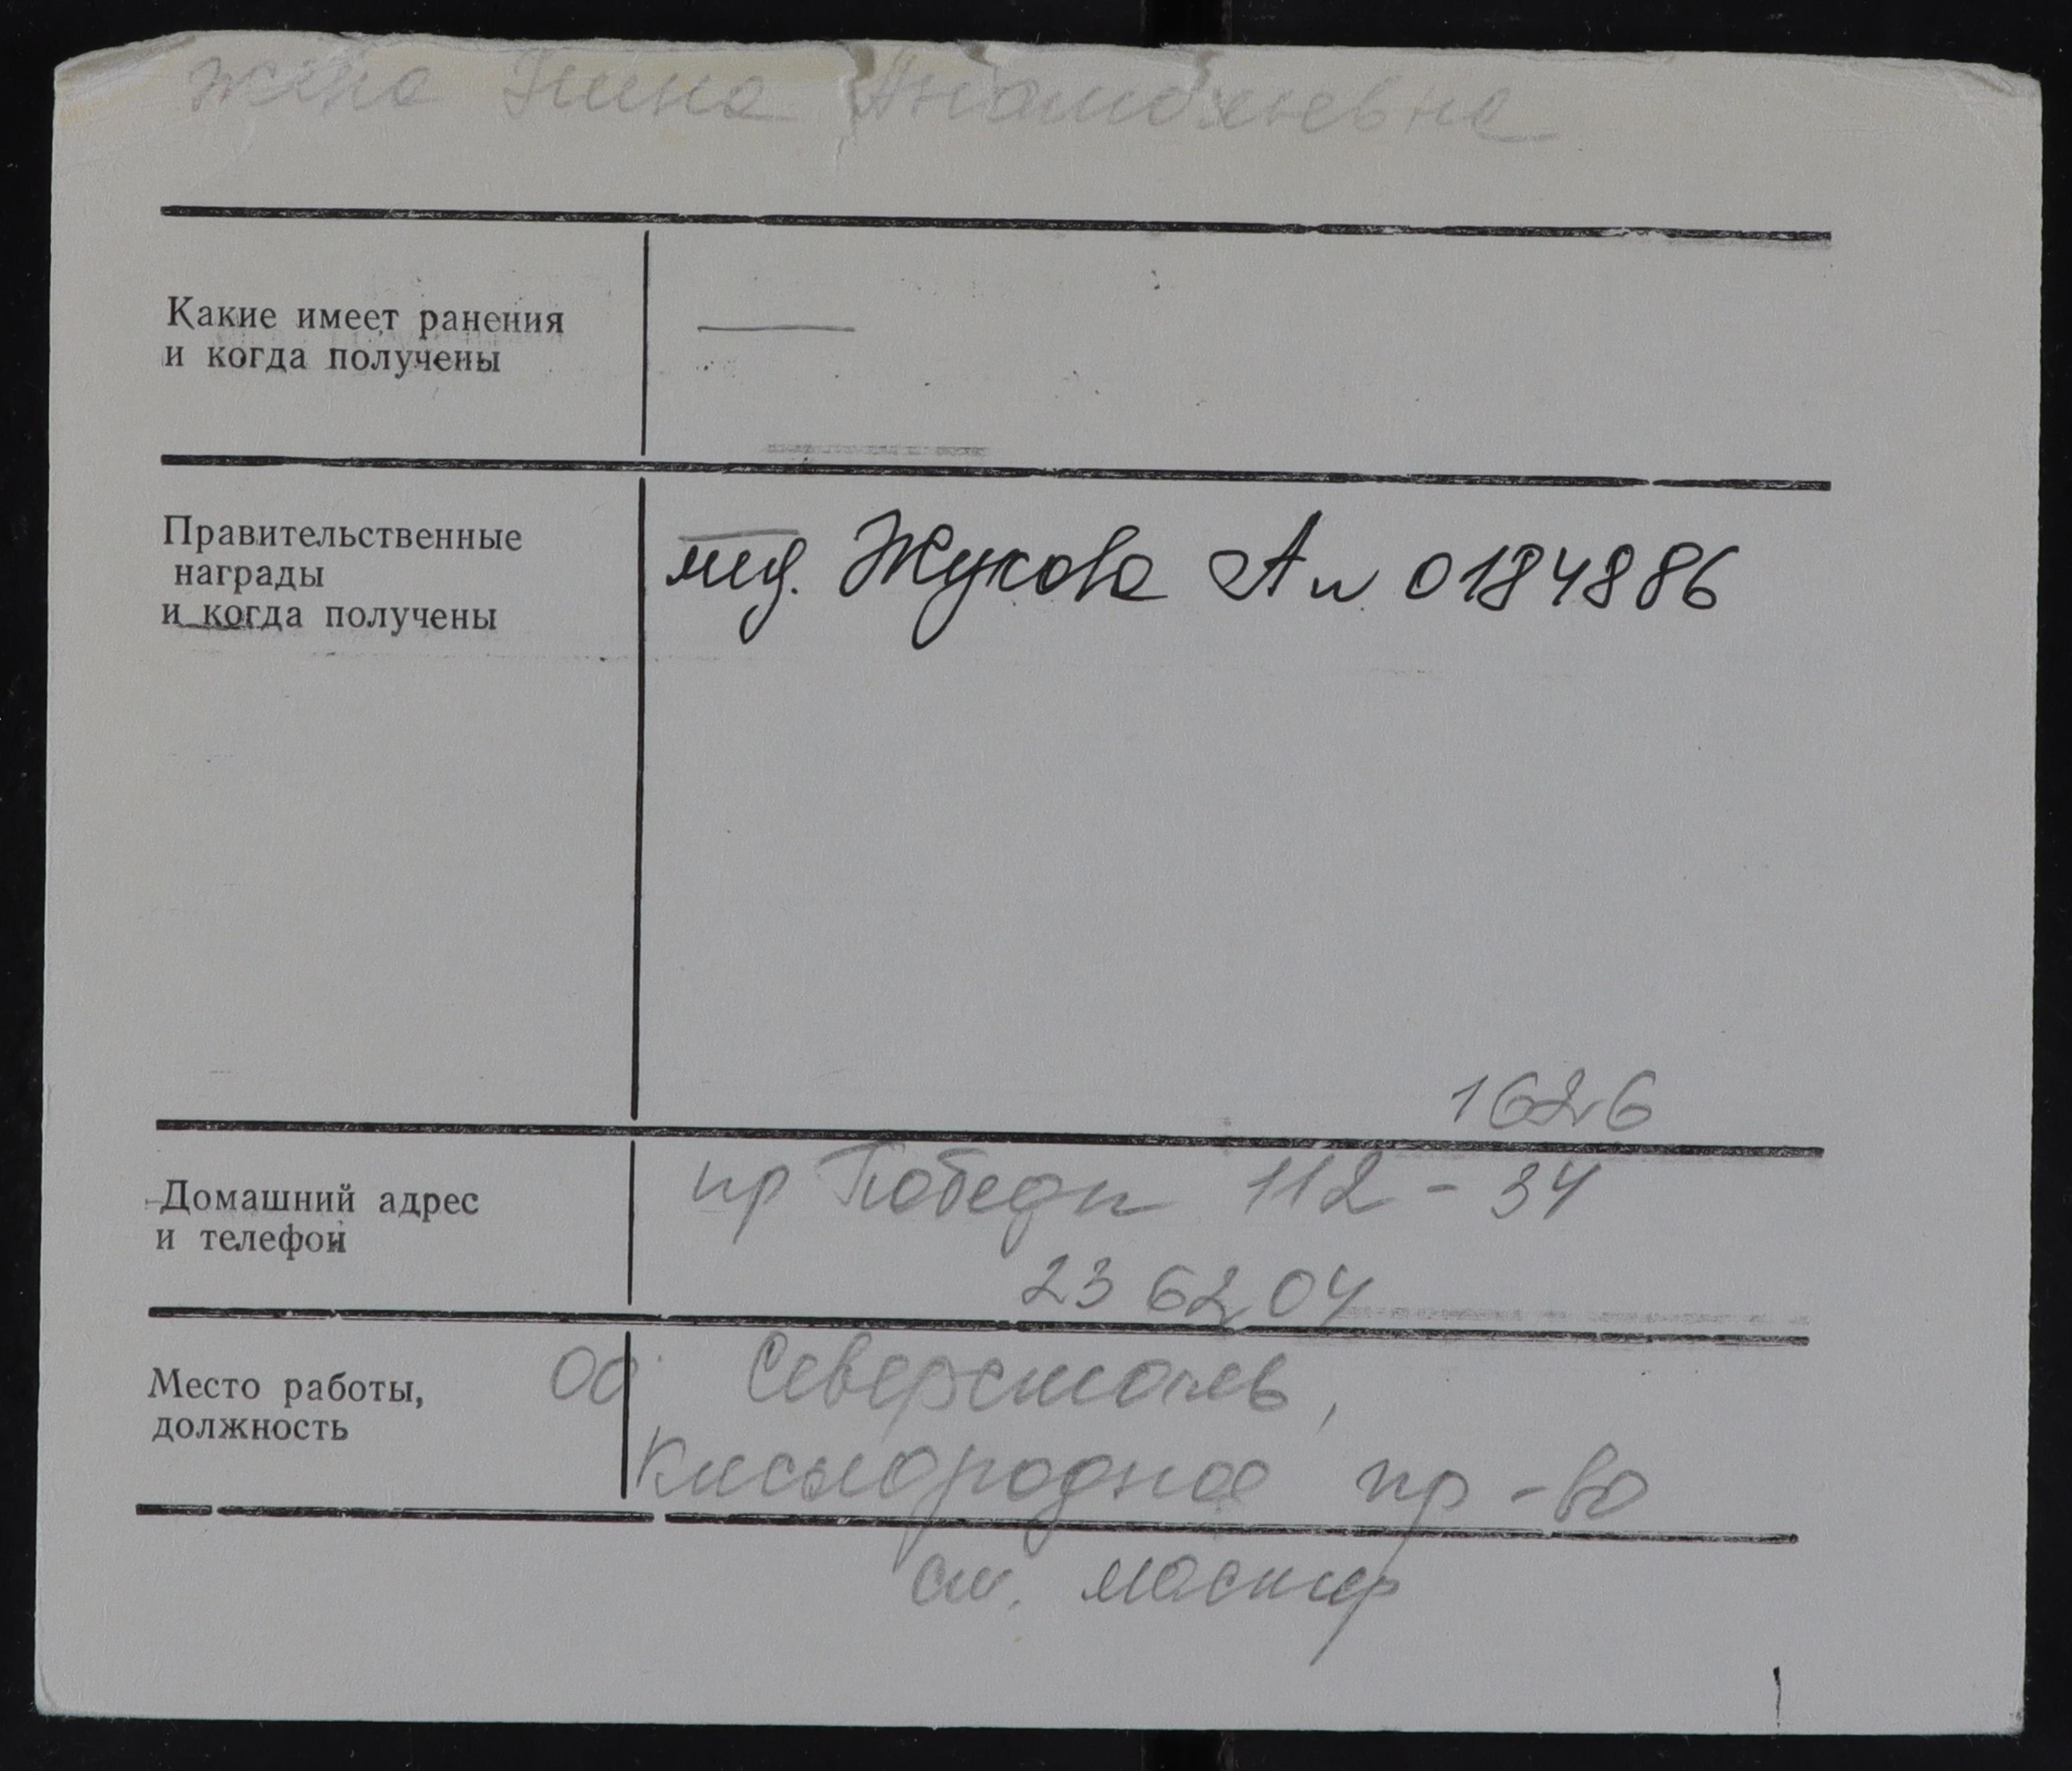 жена Нина Анатольевна
Какие имеет ранения
и когда получены
Правительственные
награды
и когда получены
мед. Жукова А № 0184886
1626
Домашний адрес
и телефон
пр Победы 112 - 34
23 62 04
Место работы,
должность
Северсталь,
Кислородное пр-во
ст. мастер